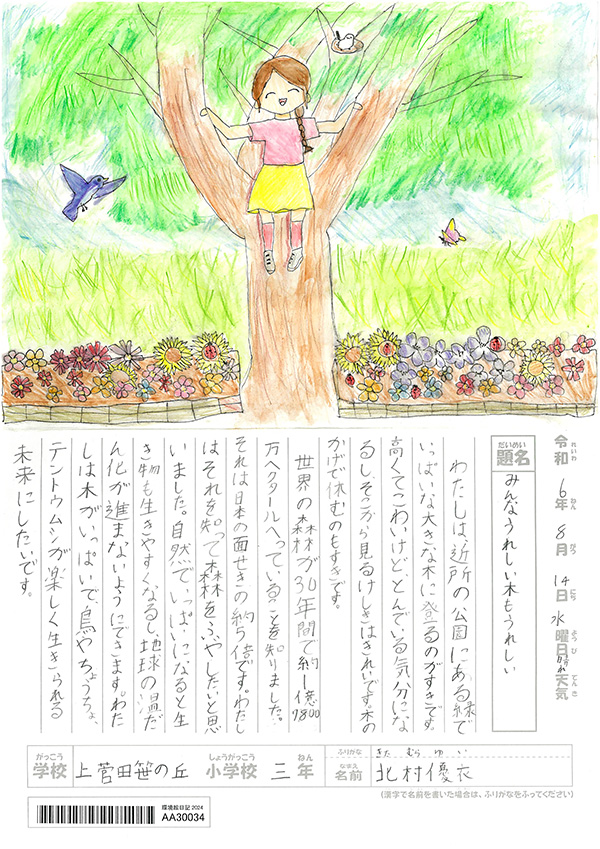 令和6年8月14日水曜日 天気 晴れ
れいわ ねん がつ にち ようび てんき
だいめい
題名
みんなうれしい木もうれしい
わたしは、近所の公園にある緑で
いっぱいな大きな木に登るのがすきです。
高くてこわいけど、とんでいる気分にな
るし、そこから見るけしきはきれいです。木の
かげで休むのもすきです。
世界の森林が30年間で約1億7800
万ヘクタールへっていることを知りました。
それは日本の面せきの約5倍です。わたし
はそれを知って森林をふやしたいと思
いました。自然でいっぱいになると生
き物も生きやすくなるし、地球の温だ
ん化が進まないようにできます。わた
しは木がいっぱいで、鳥やちょうちょ、
テントウムシが楽しく生きられる
未来にしたいです。
がっこう
学校
上菅田笹の丘
しょうがっこう
小学校
三
ねん
年
ふりがな
きたむらゆい
なまえ
名前
北村優衣
(漢字で名前を書いた場合は、ふりがなをふってください)
環境絵日記2024
AA30034